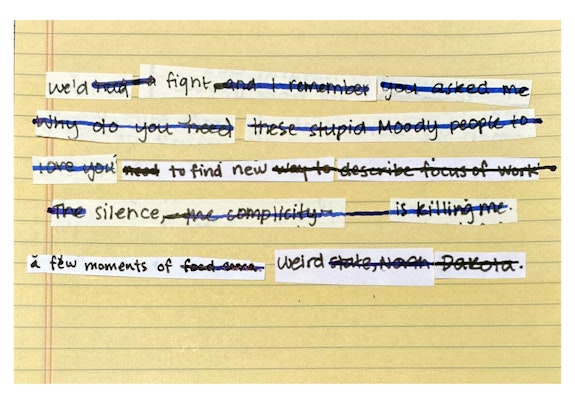 we'd had a fight, and I remember you asked me
Why do you need these stupid Moody people to
love you need to find new way to describe focus of work
The silence, the complicity is killing me.
a few moments of weird state, North Dakota.